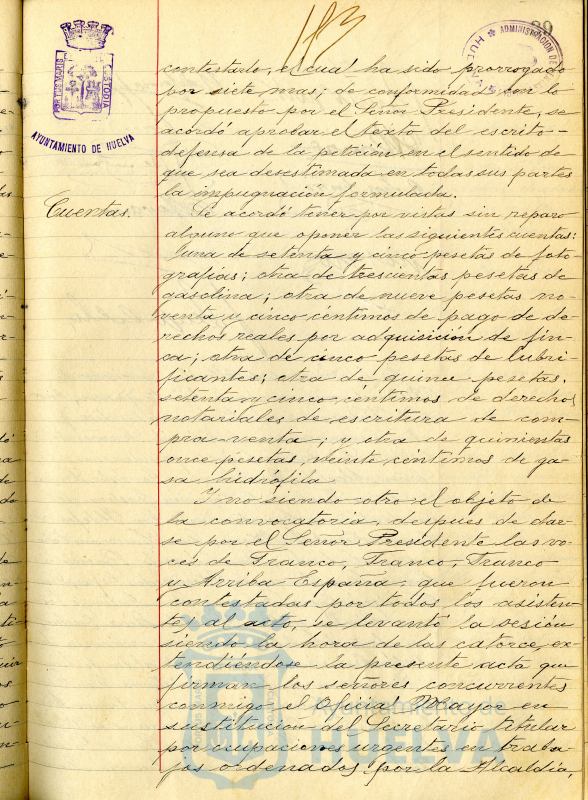 183
29
ADMINISTRACION DE
HUELVA
PORTUS MARIS
CUSTODIA
AYUNTAMIENTO DE HUELVA
contestarlo, el cual ha sido prorrogado
por siete mas; de conformidad con lo
propuesto por el Señor Presidente, se
acordó aprobar el texto del escrito-
defensa de la petición en el sentido de
que sea desestimada en todas sus partes
la impugnación formulada.
Cuentas.
Se acordó tener por vistas sin reparo
alguno que oponer las siguientes cuentas:
una de setenta y cinco pesetas de foto-
grafías; otra de trescientas pesetas de
gasolina; otra de nueve pesetas no-
venta y cinco céntimos de pago de de-
rechos reales por adquisición de fin-
ca; otra de cinco pesetas de lubri-
ficantes; otra de quince pesetas,
setenta y cinco céntimos de derechos
notariales de escritura de com-
pra-venta; y otra de quinientas
once pesetas, veinte céntimos de ga-
sa hidrófila
Y no siendo otro el objeto de
la convocatoria, despues de dar-
se por el Señor Presidente las vo-
ces de Franco, Franco, Franco
y Arriba España, que fueron
contestadas por todos los asisten-
te, al acto, se levantó la sesión
siendo la hora de las catorce, ex-
tendiéndose la presente acta que
firman los señores concurrentes
conmigo el Oficial Mayor en
sustitución del Secretario titular
por ocupaciones urgentes en traba-
jos ordenados por la Alcaldía,
Ayuntamiento de
HUELVA